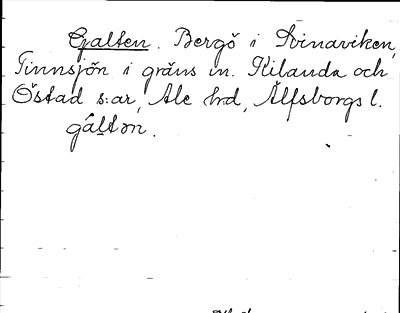 Galten. Bergö i Svinaviken,
Tinnsjön i gräns m. Kilanda och
Östad s:ar, Ale hd, Älfsborgs l.
gál̀tøn.